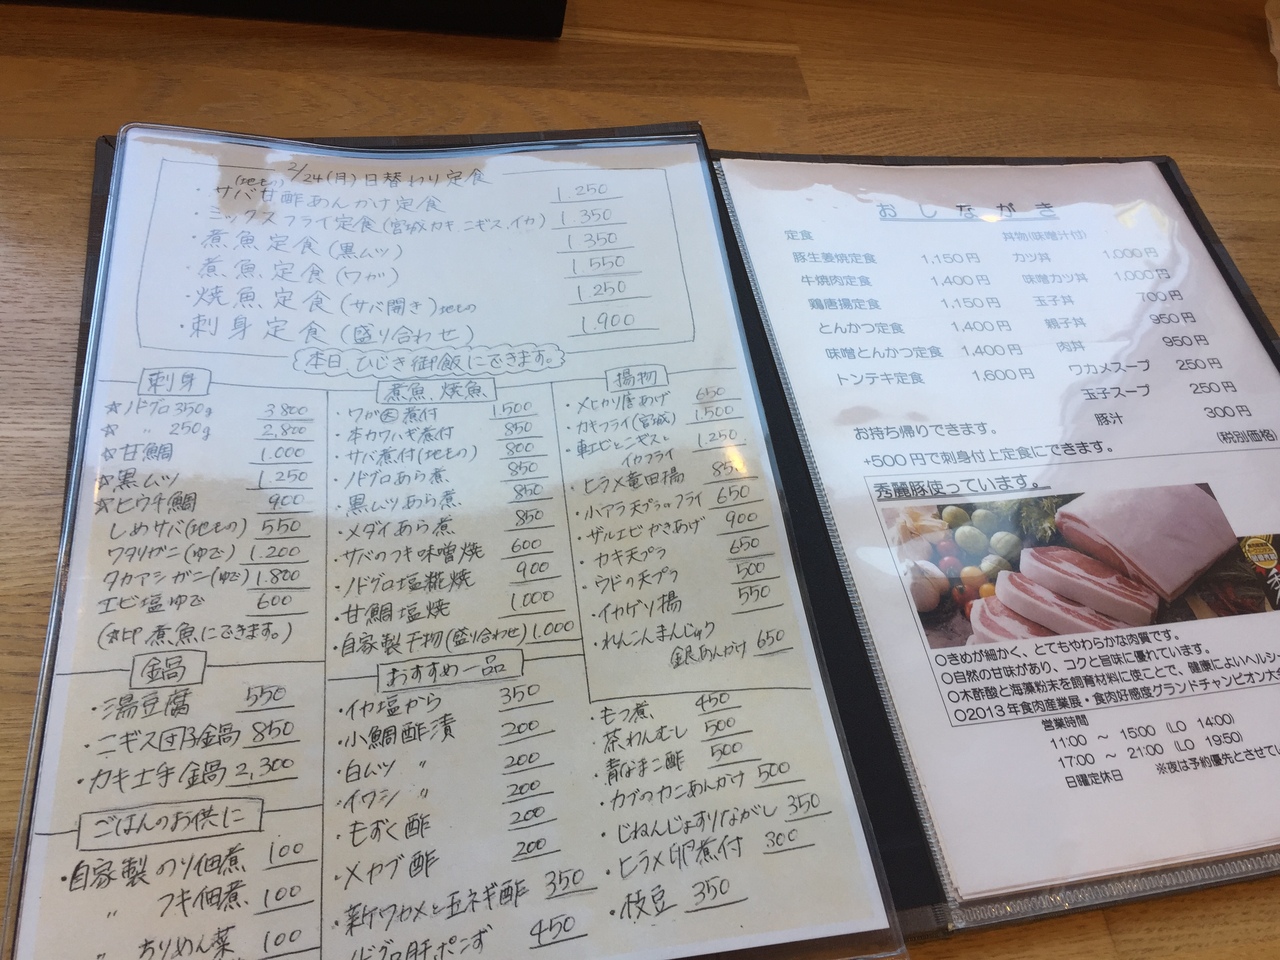 2/24(月)日替わり定食
・サバ甘酢あんかけ定食(地もの) 1.250
・ミックスフライ定食(宮城カキ、ニギス、イカ) 1.350
・煮魚定食(黒ムツ) 1.350
・煮魚定食(ワガ) 1.550
・焼魚定食(サバ開き)地もの 1.250
・刺身定食(盛り合わせ) 1.900
本日、ひじき御飯にできます。
刺身
☆ノドグロ350g 3.800
☆ 〃 250g 2.800
☆甘鯛 1.000
☆黒ムツ 1.250
☆ヒウチ鯛 900
しめサバ(地もの) 550
ワタリガニ(ゆで) 1.200
タカアシガニ(ゆで) 1.800
エビ塩ゆで 600
(☆印煮魚にできます。)
鍋
・湯豆腐 550
・ニギス団子鍋 850
・カキ土手鍋 2,300
ごはんのお供に
・自家製のり佃煮 100
〃 フキ佃煮 100
〃 ちりめん 100
煮魚 焼魚
・ワガ煮付 1.500
・本カワハギ煮付 850
・サバ煮付(地もの) 800
・ノドグロあら煮 850
・黒ムツあら煮 850
・メダイあら煮 850
・サバのフキ味噌焼 600
・ノドグロ塩糀焼 900
・甘鯛塩焼 1.000
・自家製干物(盛り合わせ) 1.000
おすすめ一品
・イカ塩から 350
・小鯛酢漬 200
・白ムツ 〃 200
・イワシ 〃 200
・もずく酢 200
・メカブ酢 200
・新ワカメと玉ネギ酢 350
・ノドグロ肝ポンず 450
揚物
・メヒカリ唐あげ 650
・カキフライ(宮城) 1.500
・車エビとニギスと
イカフライ 1.250
・ヒラメ竜田揚 850
・小アラ天プラorフライ 650
・ザルエビかきあげ 900
・カキ天プラ 650
・ウドの天プラ 500
・イカゲソ揚 550
・れんこんまんじゅう
銀あんかけ 650
・もつ煮 450
・茶わんむし 500
・青なまこ酢 500
・カブのカニあんかけ 500
・じねんじょすりながし 350
・ヒラメ卵煮付 300
・枝豆 350
おしながき
定食
豚生姜焼定食 1,150円
牛焼肉定食 1,400円
鶏唐揚定食 1,150円
とんかつ定食 1,400円
味噌とんかつ定食 1,400円
トンテキ定食 1,600円
丼物(味噌汁付)
カツ丼 1,000円
味噌カツ丼 1,000円
玉子丼 700円
親子丼 950円
肉丼 950円
ワカメスープ 250円
玉子スープ 250円
豚汁 300円
(税別価格)
お持ち帰りできます。
+500円で刺身付上定食にできます。
秀麗豚使っています。
○きめが細かく、とてもやわらかな肉質です。
○自然の甘味があり、コクと旨味に優れています。
○木酢酸と海藻粉末を飼育材料に使ことで、健康によいヘルシー
○2013年食肉産業展・食肉好感度グランドチャンピオン大
営業時間
11:00 ～ 15:00 (LO 14:00)
17:00 ～ 21:00 (LO 19:50)
日曜定休日 ※夜は予約優先とさせてい